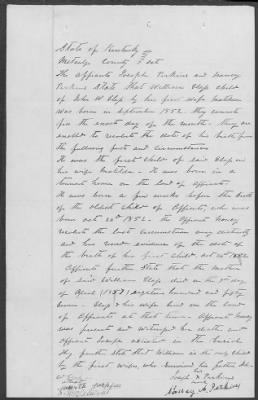 State of Kentucky
Metcalfe County Sct
The Affiants Joseph Perkins and Nancy
Perkins State that William Slop child
of John W Slop by his first wife Matilda
was born in September 1852. they cannot
fix the exact day of the month. they are
enabled to recollect the date of his birth from
the following facts and circumstances
He was the first child of said Slop and
his wife Matilda. He was born in a
house on the land of affiants
He was born a few weeks before the birth
of the oldest child of Affiants, who was
born Oct 20th 1852. the Affiant Nancy
recollects the last circumstance very distinctly
and has record evidence of the date of
the birth of her first child, Oct 20th 1852
Affiants further State that the mother
of said William Slop died on the 1st day
of April (1857) eighteen hundred and fifty
Seven. Slop & his wife lived on the land
of Affiants at that time. Affiant Nancy
was present and witnessed her death and
Affiant Joseph assisted in the burial
They further state that William is the only child
by the first wife, who survived his father
Joseph Perkins
Nancy A. Perkins